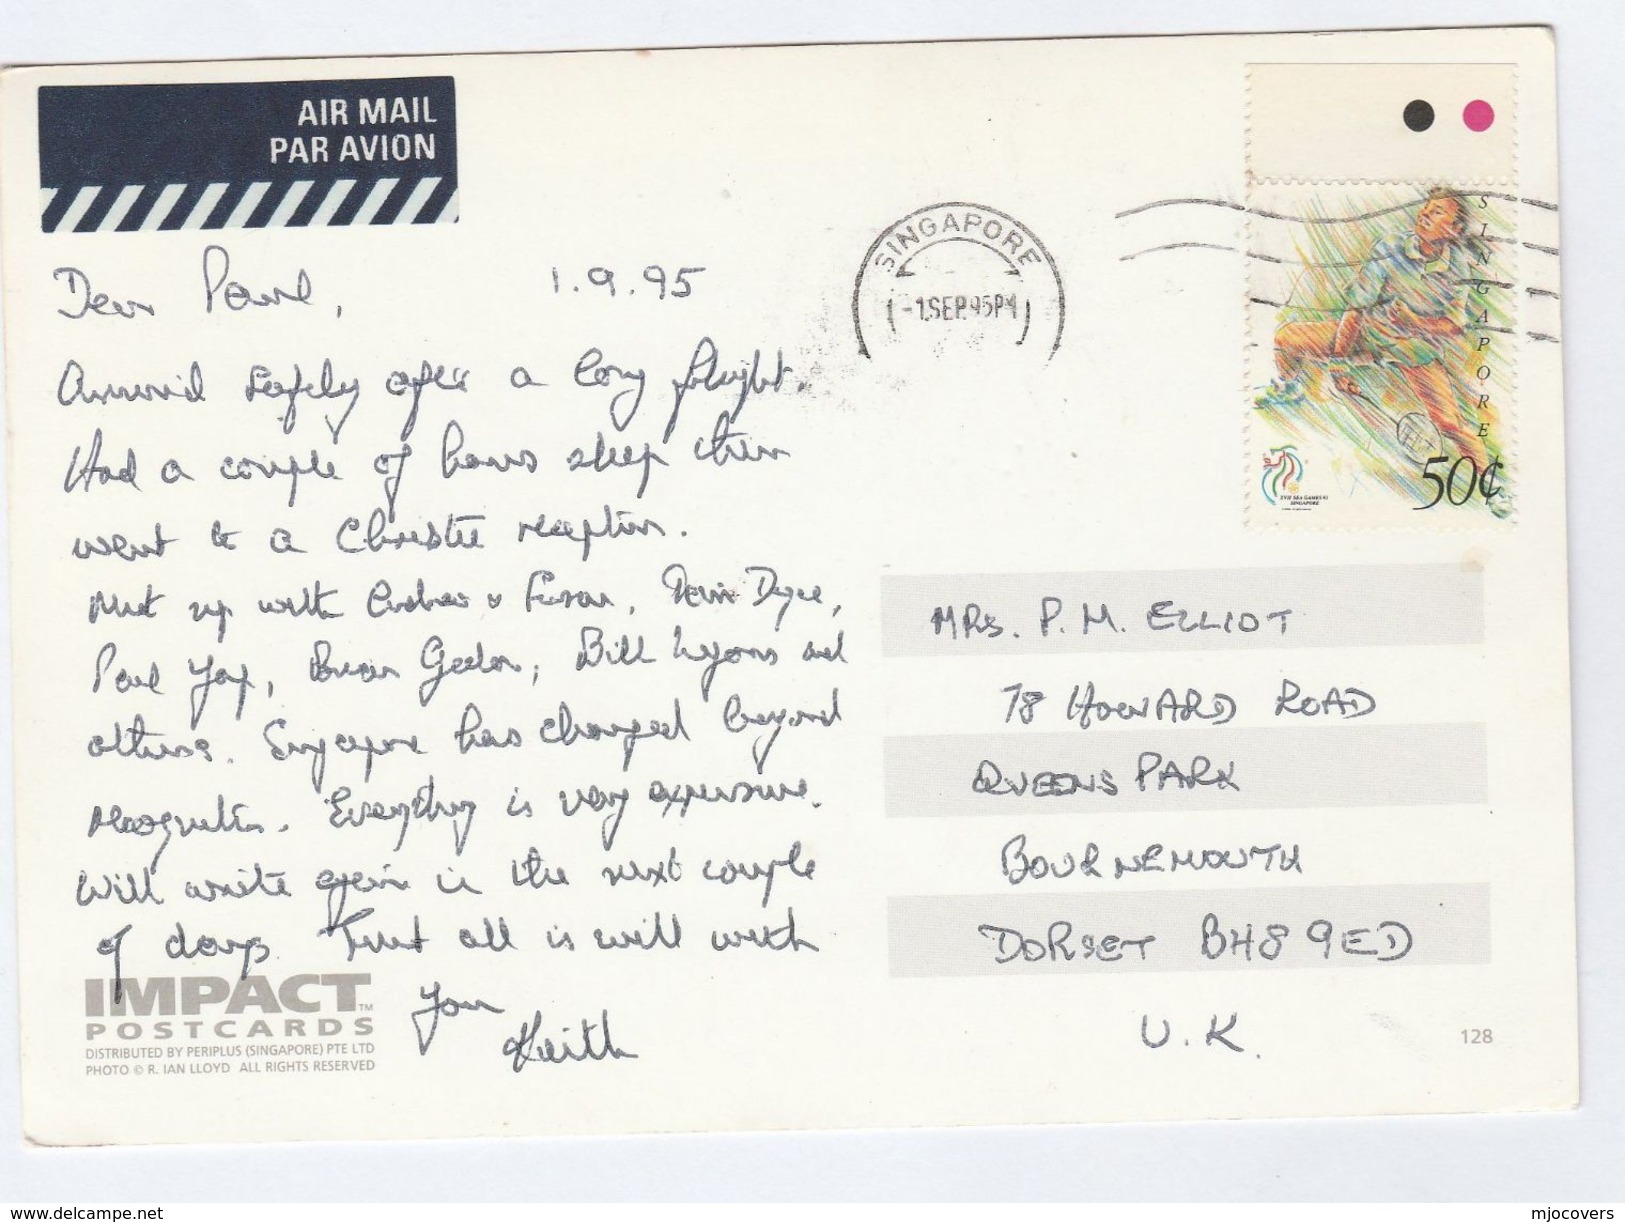 AIR MAIL
PAR AVION
SINGAPORE
-1 SEP 95 PM
SINGAPORE
XVII SEA GAMES 93
SINGAPORE
50¢
Dear 1.9.95
Arrived safely after a long flight.
Had a couple of hours sleep then
went to a Christie reception.
Met up with Andrew & Dyce,
Paul Yap, Brian Bill Lyons and
others. Singapore has changed beyond
recognition. Everything is very expensive.
Will write again in the next couple
of days. Trust all is well with
you
Keith
MRS. P. M. ELLIOT
78 HOWARD ROAD
QUEENS PARK
BOURNEMOUTH
DORSET BH8 9ED
U.K.
IMPACT™
POSTCARDS
DISTRIBUTED BY PERIPLUS (SINGAPORE) PTE LTD
PHOTO © R. IAN LLOYD ALL RIGHTS RESERVED
128
www.delcampe.net
mjocovers